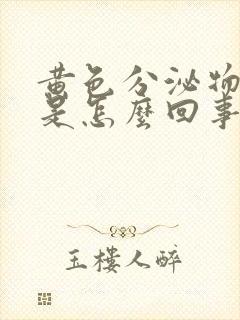 黄色分泌物
是怎麼回事
玉樓人醉